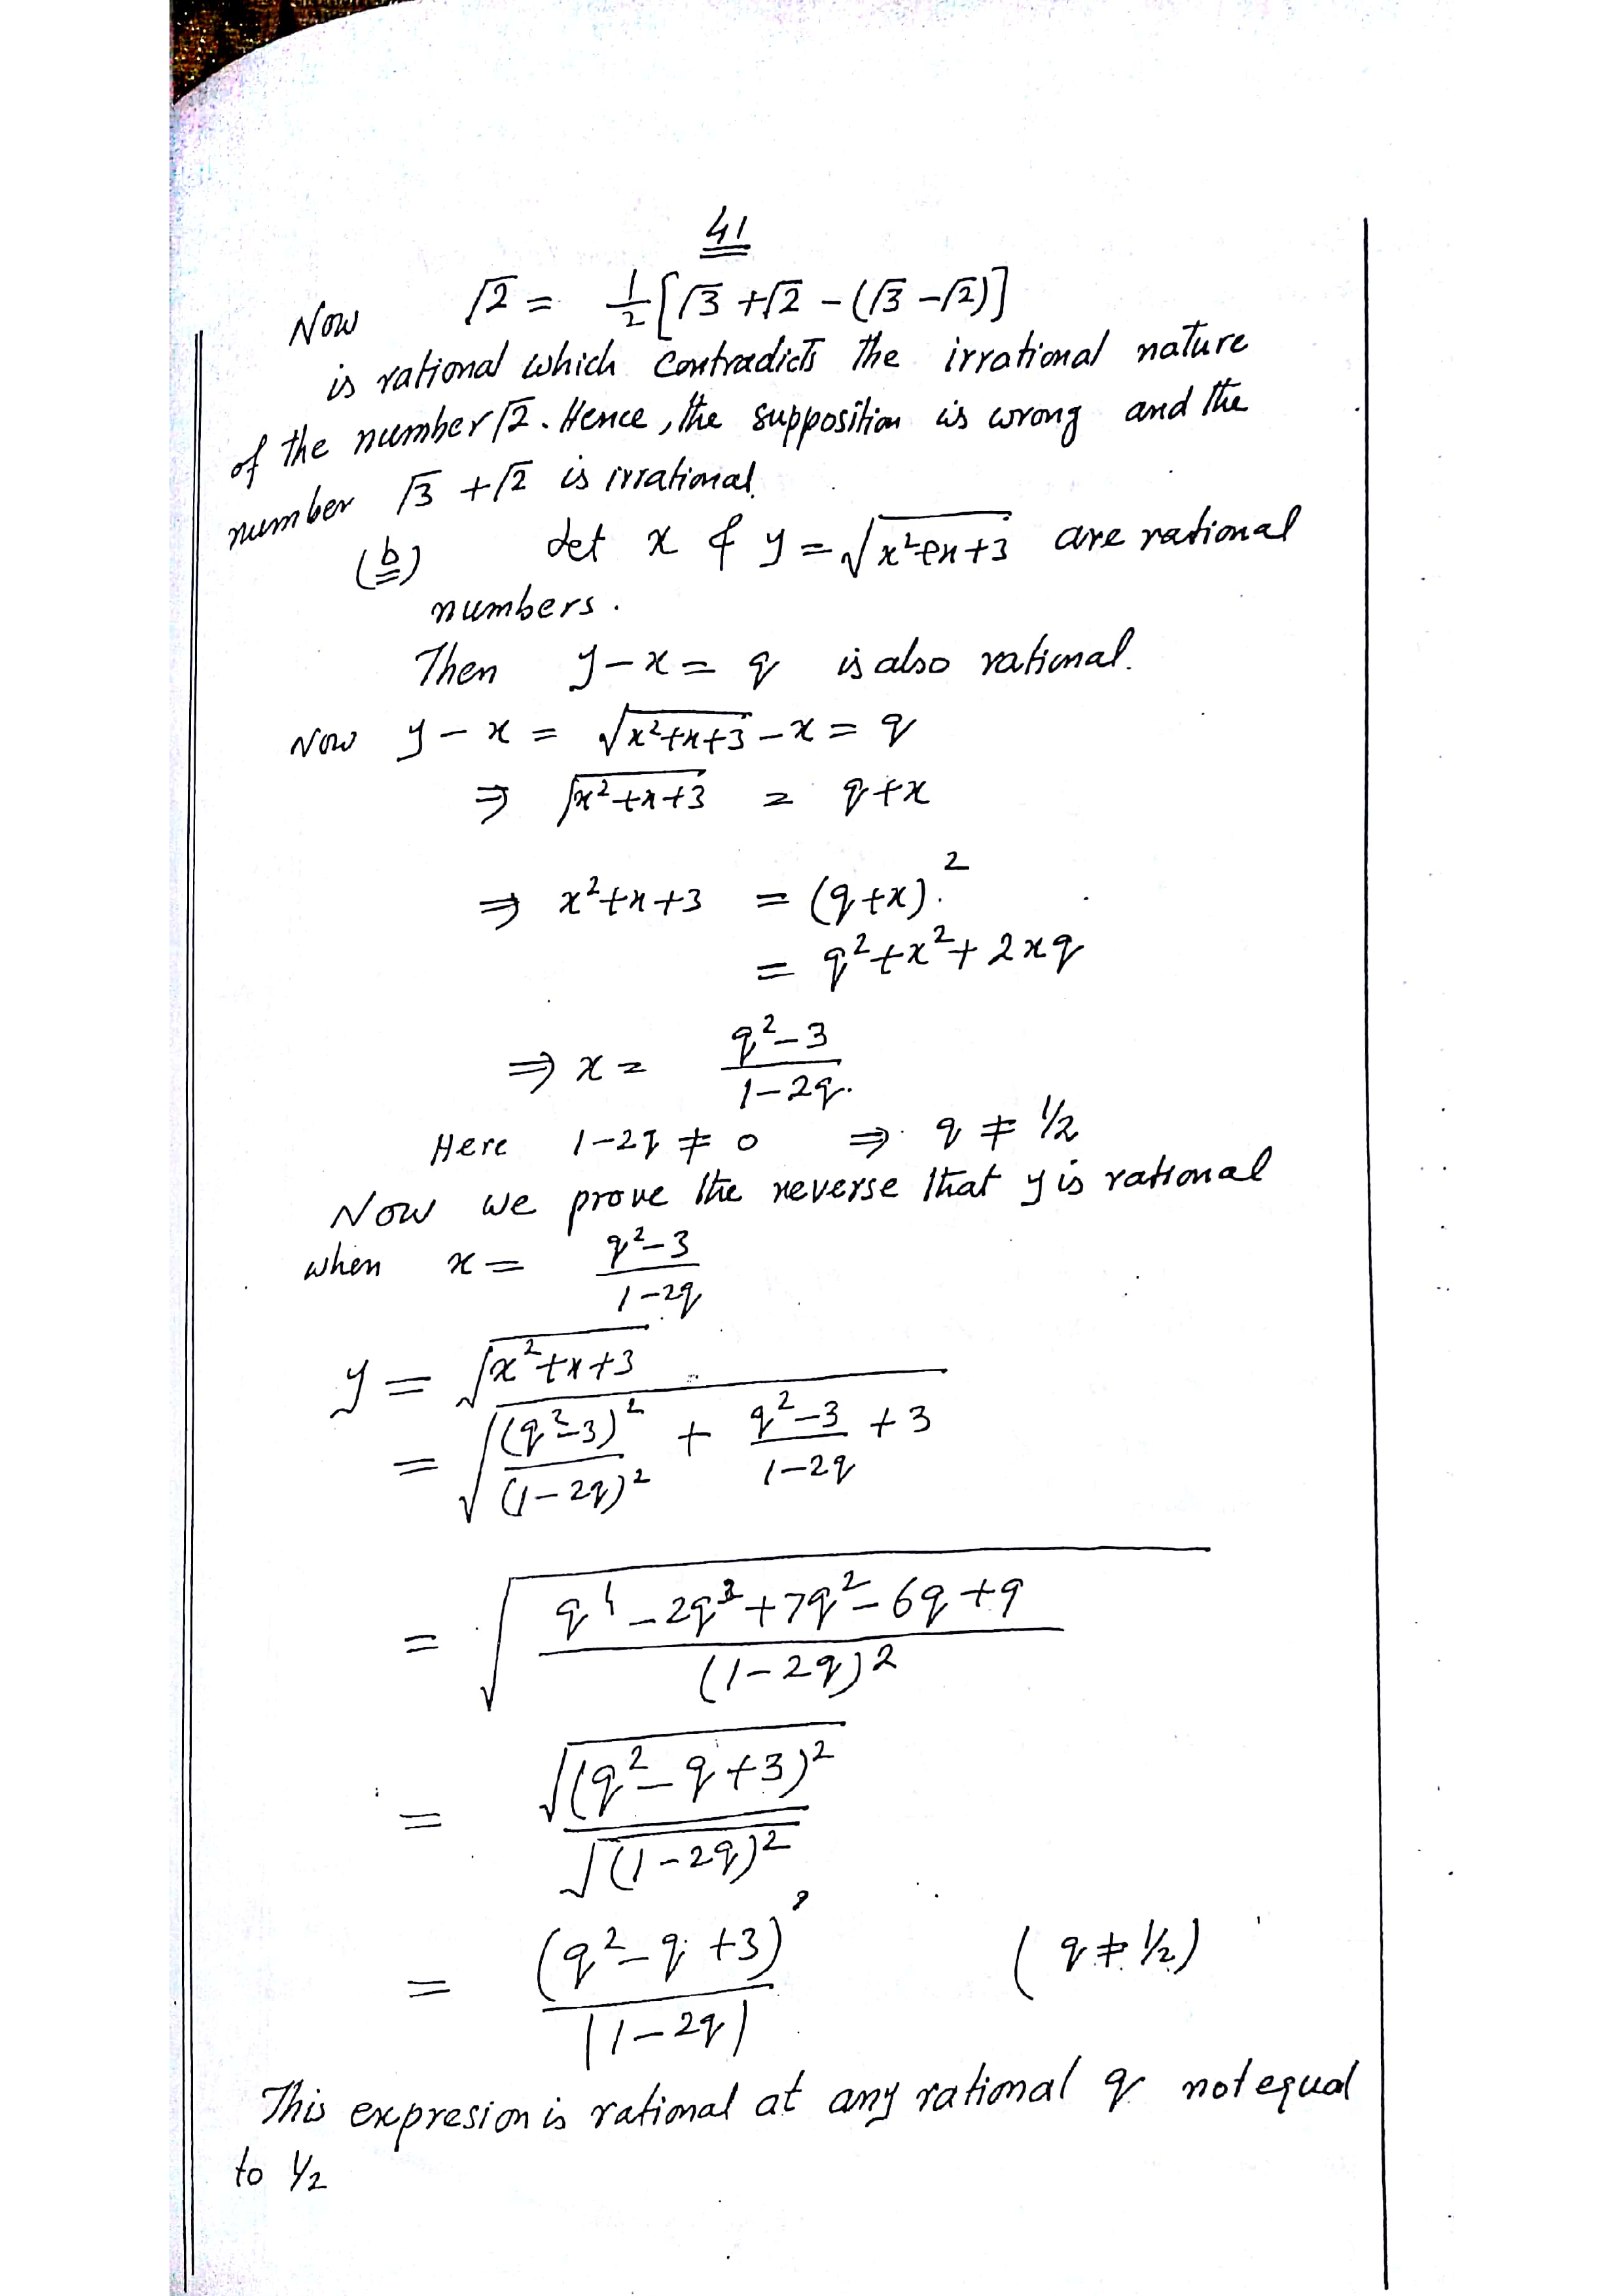 41
Now √2 = 1/2 [√3 + √2 - (√3 - √2)]
is rational which contradicts the irrational nature
of the number √2. Hence, the supposition is wrong and the
number √3 + √2 is irrational.
(b) Let x & y = √(x²+x+3) are rational
numbers.
Then y - x = q is also rational.
Now y - x = √(x²+x+3) - x = q
⇒ √(x²+x+3) = q+x
⇒ x²+x+3 = (q+x)²
= q²+x²+2xq
⇒ x = (q²-3)/(1-2q)
Here 1-2q ≠ 0 ⇒ q ≠ 1/2
Now we prove the reverse that y is rational
when x = (q²-3)/(1-2q)
y = √(x²+x+3)
= √((q²-3)²/(1-2q)² + (q²-3)/(1-2q) + 3)
= √((q⁴-2q³+7q²-6q+9)/(1-2q)²)
= √((q²-q+3)²)/√((1-2q)²)
= (q²-q+3)/|1-2q| (q ≠ 1/2)
This expresion is rational at any rational q not equal
to 1/2